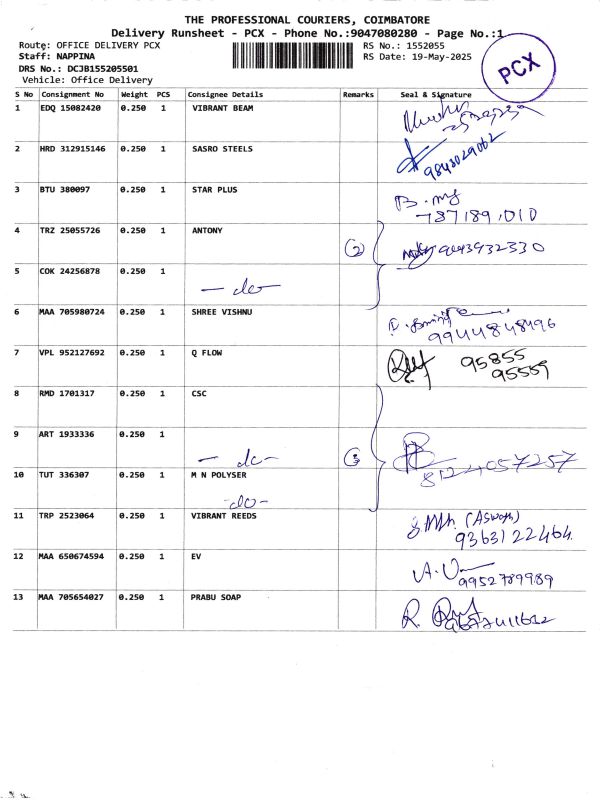 THE PROFESSIONAL COURIERS, COIMBATORE
Delivery Runsheet - PCX - Phone No.:9047080280 - Page No.:1
Route: OFFICE DELIVERY PCX RS No.: 1552055
Staff: NAPPINA RS Date: 19-May-2025
DRS No.: DCJB155205501
Vehicle: Office Delivery
PCX
S No Consignment No Weight PCS Consignee Details Remarks Seal & Signature
1 EDQ 15082420 0.250 1 VIBRANT BEAM
2 HRD 312915146 0.250 1 SASRO STEELS 9843029062
3 BTU 380097 0.250 1 STAR PLUS
787189010
4 TRZ 25055726 0.250 1 ANTONY 2 9043932330
5 COK 24256878 0.250 1
- do -
6 MAA 705980724 0.250 1 SHREE VISHNU
9944848496
7 VPL 952127692 0.250 1 Q FLOW 95855
95559
8 RMD 1701317 0.250 1 CSC
9 ART 1933336 0.250 1
- do - 3 8124057257
10 TUT 336307 0.250 1 M N POLYSER
- do -
11 TRP 2523064 0.250 1 VIBRANT REEDS (Aswath)
9363122464
12 MAA 650674594 0.250 1 EV
9952789989
13 MAA 705654027 0.250 1 PRABU SOAP